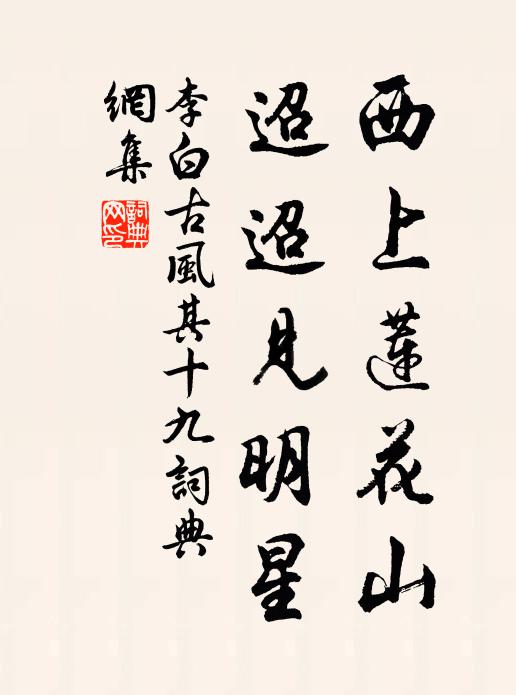 西上蓮花山
迢迢見明星
李白古風其十九詞典
網集
詞典網印